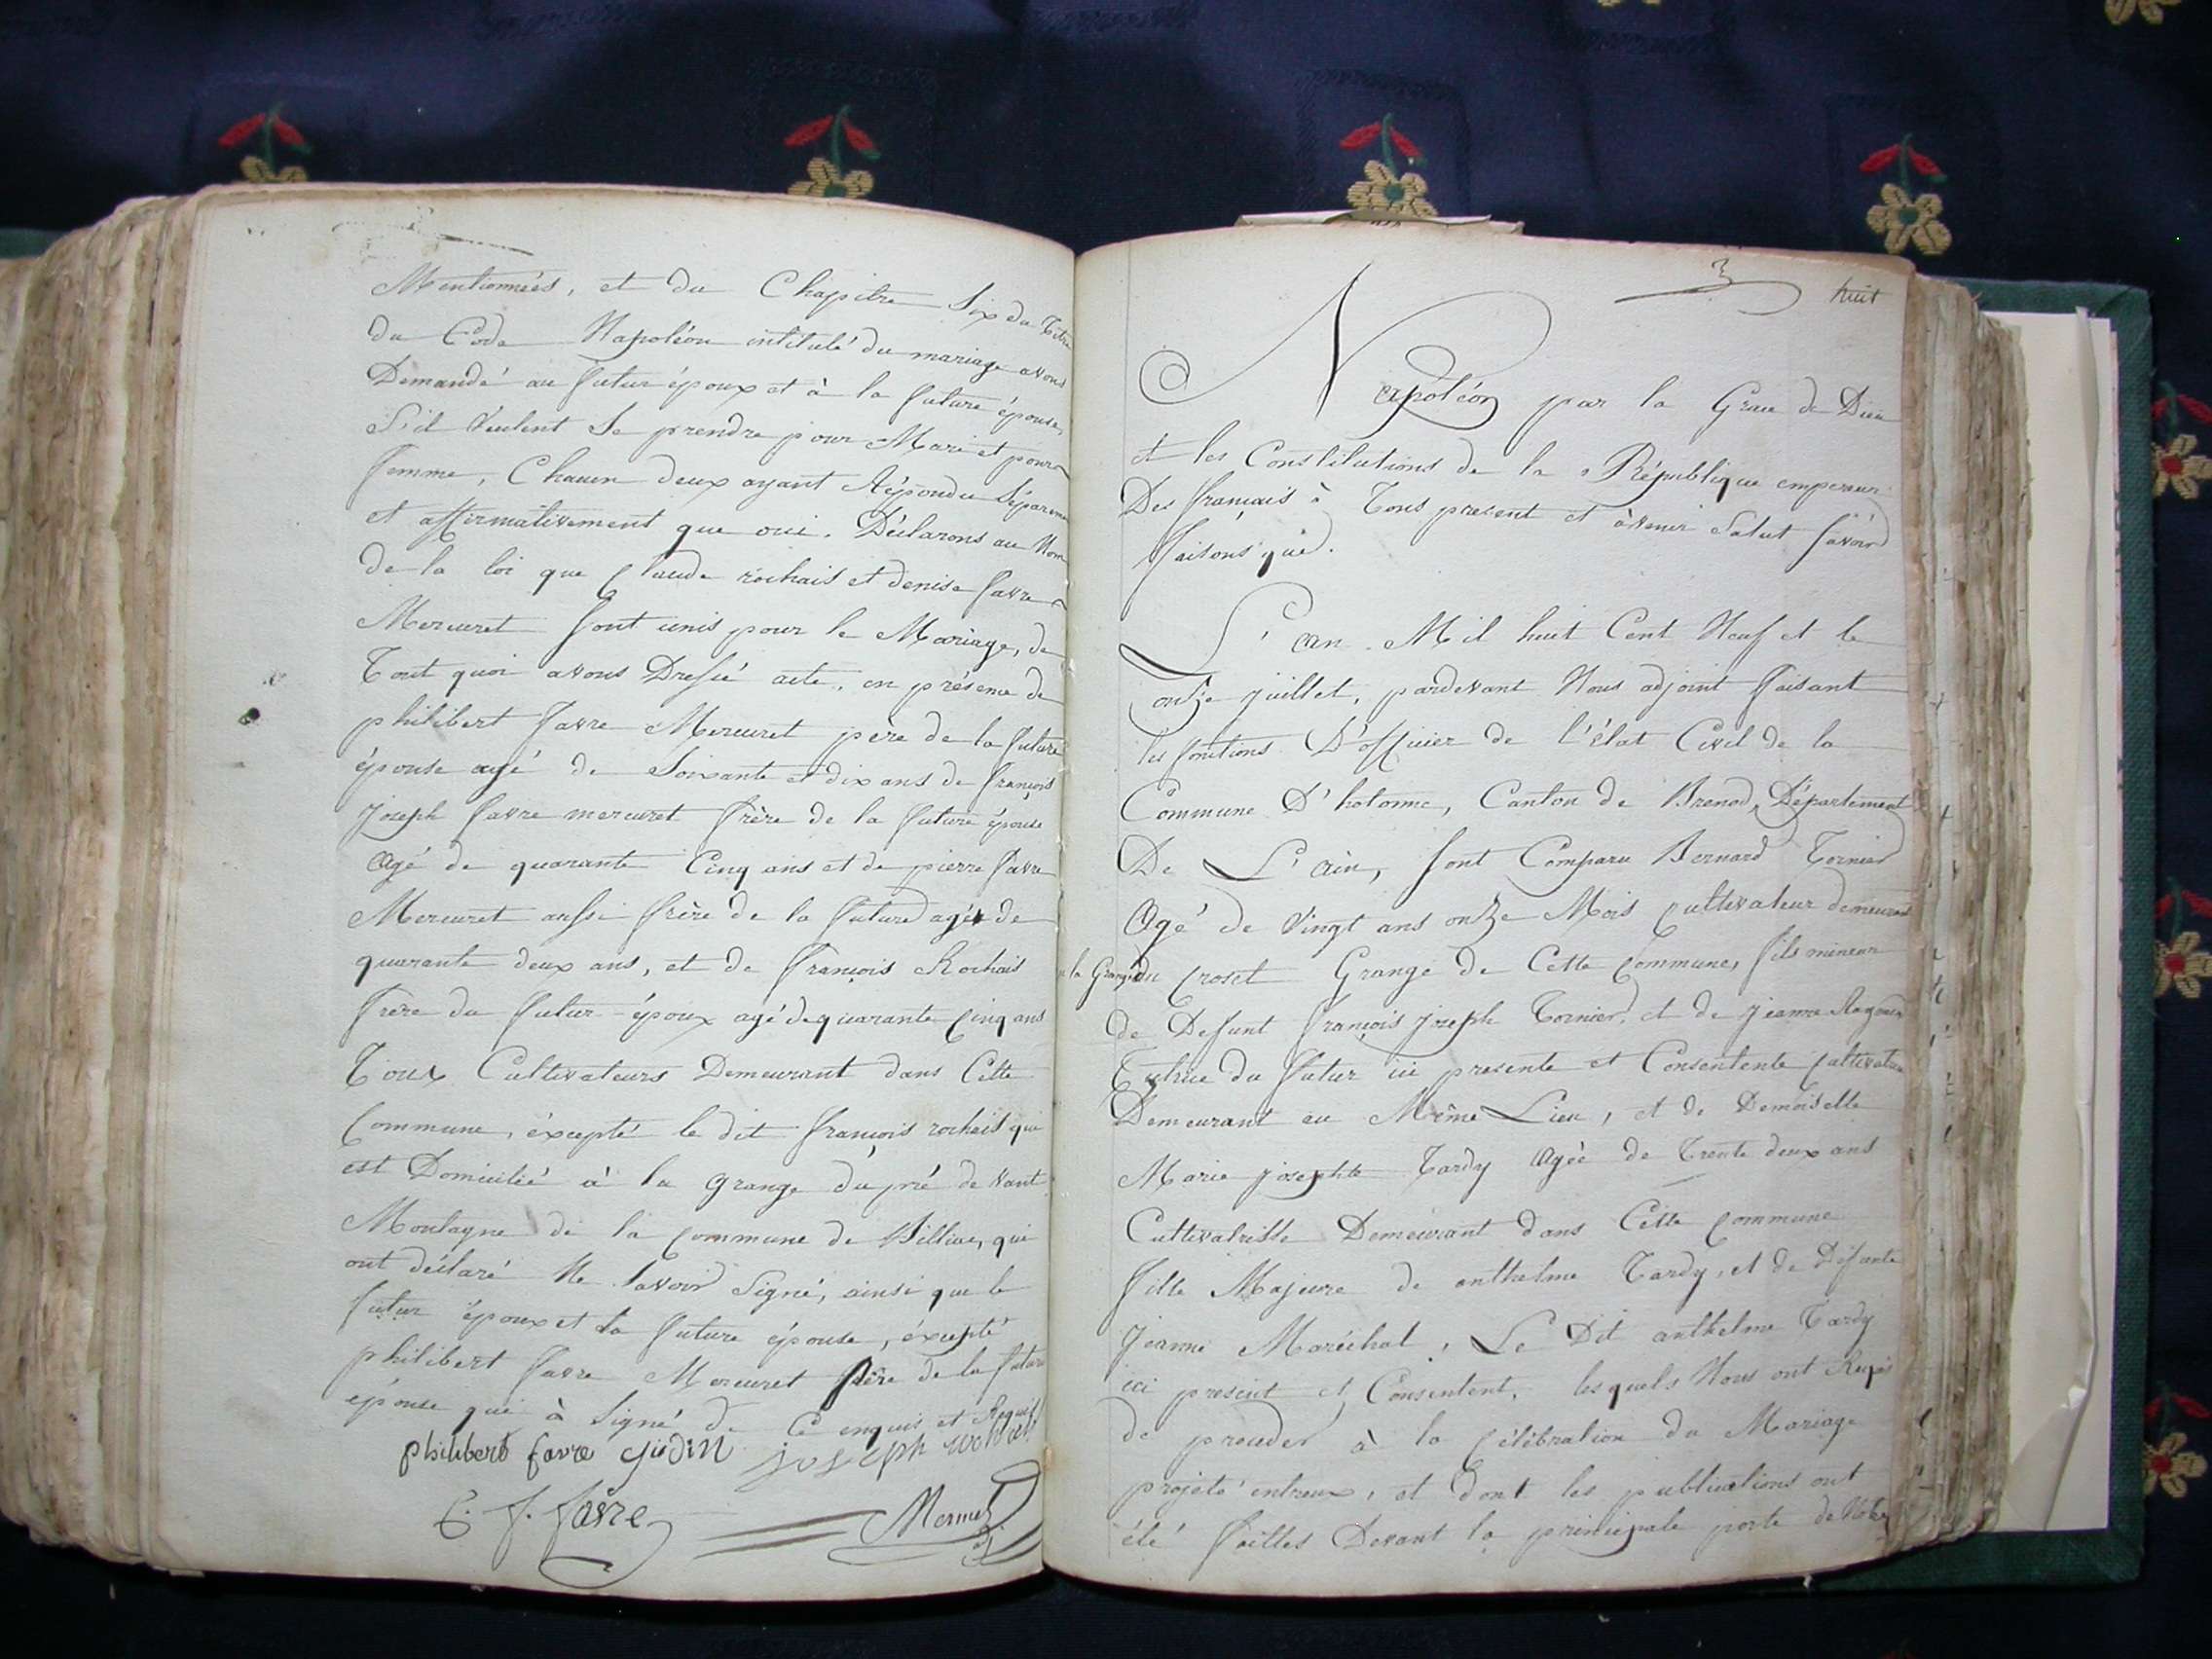 Mentionnées, et du Chapitre Six du Titre
du Code Napoléon intitulé du mariage avons
Demandé au futur époux et à la future épouse,
S'il Veulent Se prendre pour Mari et pour
femme, Chacun deux ayant Répondu Séparem
et affirmativement que oui. Déclarons au Nom
de la loi que Claude rochais et denise favre
Mercuret Sont unis pour le Mariage, de
Tout quoi avons Dressé acte, en présence de
philibert favre Mercuret père de la future
épouse agé de Soixante et dix ans de françois
Joseph favre mercuret frère de la future épouse
Agé de quarante Cinq ans et de pierre favre
Mercuret aussi frère de la future agé de
quarante deux ans, et de françois Rochais
frère du futur époux agé de quarante Cinq ans
Tous Cultivateurs Demeurant dans Cette
Commune, éxcepté le dit françois rochais qui
est Domicilié à la grange du pré devant
Montagne de la Commune de Billiac, qui
ont déclaré Ne Savoir Signé, ainsi que le
futur époux et la future épouse, éxcepté
philibert favre Mercuret père de la future
épouse qui à Signé de Ce enquis et Requis
philibert favre joseph
C. f. favre Mermet
3 huit
Napoléon par la Grace de Dieu
et les Constitutions de la République empereur
Des français à Tous présent et àvenir Salut Savoir
faisons que.
L'an Mil huit Cent Neuf et le
onze juillet, pardevant Nous adjoint faisant
les fontions D'officier de l'état Civil de la
Commune D'hotonne, Canton de Brenod, Département
De L'ain, Sont Comparu Bernard Tornier
Agé de Vingt ans onze Mois Cultivateur demeurant
a la Grange du Croset Grange de Cette Commune, fils mineur
de Defunt françois Joseph Tornier, et de jeanne
Tutrice du futur ici presente et Consentente Cultivatrice
Demeurant au Même Lieu, et de Demoiselle
Marie josephte Tardy Agée de Trente deux ans
Cultivatrisse Demeurant dans Cette Commune
fille Majeure de anthelme Tardy, et de Défunte
Jeanne Maréchal, Le Dit anthelme Tardy
ici present et Consentent, lesquels Nous ont Requis
de proceder à la Célébration du Mariage
projeté entreux, et dont les publications ont
été faittes Devant la principale porte de Notre